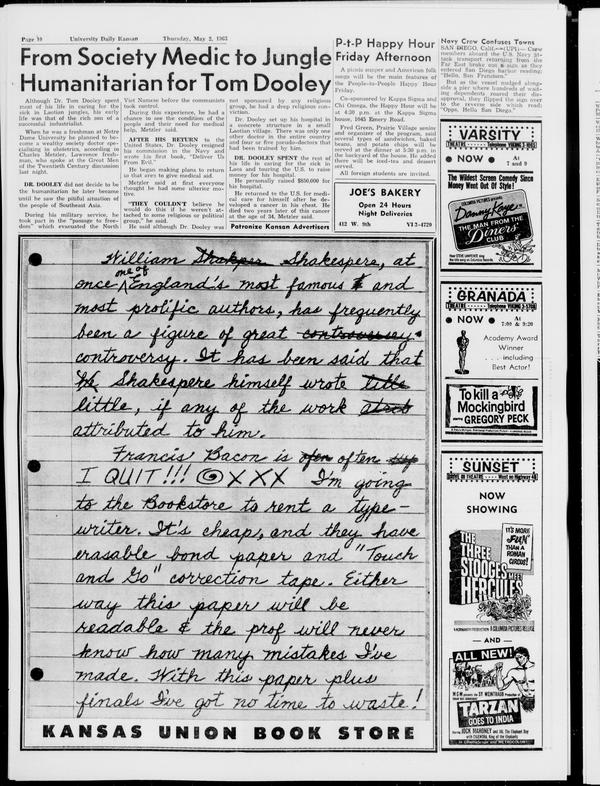 Page 10 University Daily Kansan Thursday, May 2, 1963
From Society Medic to Jungle
Humanitarian for Tom Dooley
Although Dr. Tom Dooley spent
most of his life in caring for the
sick in Laotian peoples, his early
life was that of the rich son of a
successful industrialist.
When he was a freshman at Notre
Dame University he planned to be-
come a wealthy society doctor spe-
cializing in obstetrics, according to
Charles Metzler, Lawrence fresh-
man, who spoke at the Great Men
of the Twentieth Century discussion
last night.
DR. DOOLEY did not decide to be
the humanitarian he later became
until he saw the pitiful situation of
the people of Southeast Asia.
During his military service, he
took part in the "passage to free-
dom" which evacuated the North
Viet Namese before the communists
took control.
During this experience, he had a
chance to see the condition of the
people and their need for medical
help, Metzler said.
AFTER HIS RETURN to the
United States, Dr. Dooley resigned
his commission in the Navy and
wrote his first book, "Deliver Us
From Evil."
He began making plans to return
to that area to give medical aid.
Metzler said at first everyone
thought he had some ulterior mo-
tive.
"THEY COULDN'T believe he
would do this if he weren't at-
tached to some religious or political
group," he said.
He said although Dr. Dooley was
not sponsored by any religious
group, he had a deep religious con-
viction.
Dr. Dooley set up his hospital in
a concrete structure in a small
Laotian village. There was only one
other doctor in the entire country
and four or five pseudo-doctors that
had been trained by him.
DR. DOOLEY SPENT the rest of
his life in caring for the sick in
Laos and touring the U.S. to raise
money for his hospital.
He personally raised $850,000 for
his hospital.
He returned to the U.S. for medi-
cal care for himself after he de-
veloped a cancer in his chest. He
died two years later of this cancer
at the age of 34, Metzler said.
Patronize Kansan Advertisers
P-t-P Happy Hour
Friday Afternoon
A picnic supper and American folk
songs will be the main features of
the People-to-People Happy Hour
Friday.
Co-sponsored by Kappa Sigma and
Chi Omega, the Happy Hour will be
at 4:30 p.m. at the Kappa Sigma
house, 1045 Emery Road.
Fred Green, Prairie Village senior
and organizer of the program, said
several types of sandwiches, baked
beans, and potato chips will be
served at the dinner at 5:30 p.m. in
the backyard of the house. He added
there will be iced-tea and dessert
served.
All foreign students are invited.
JOE'S BAKERY
Open 24 Hours
Night Deliveries
412 W. 9th VI 3-4720
Navy Crew Confuses Towns
SAN DIEGO, Calif.—(UPI)— Crew
members aboard the U.S. Navy at-
tack transport returning from the
Far East broke out a sign as they
entered San Diego harbor reading:
"Hello, San Francisco."
But as the vessel nudged along-
side a pier where hundreds of wait-
ing dependents roared their dis-
approval, they flipped the sign over
to the reverse side which read:
"Opps, Hello San Diego."
VARSITY
THEATRE
• NOW • At
7 and 9
The Wildest Screen Comedy Since
Money Went Out Of Style!
COLUMBIA PICTURES presents
Danny Kaye
THE MAN FROM THE
Diners'
CLUB
GRANADA
THEATRE
• NOW • At
7:00 & 9:20
Academy Award
Winner
. . . including
Best Actor!
To kill a
Mockingbird
starring GREGORY PECK
SUNSET
DRIVE IN THEATRE West on Highway 40
NOW
SHOWING
IT'S MORE
FUN
THAN A
ROMAN
CIRCUS!
THE
THREE
STOOGES MEET
HERCULES
A COLUMBIA PICTURES RELEASE
— AND —
ALL NEW!
M-G-M presents the SY WEINTRAUB Production
TARZAN
GOES TO INDIA
Starring JOCK MAHONEY
William Shakper Shakespere, at
once one of England's most famous and
most prolific authors, has frequently
been a figure of great controversay
controversy. It has been said that
he Shakespere himself wrote little
little, if any of the work atreb
attributed to him.
Francis Bacon is ofen often
I QUIT!!! XXX I'm going
to the Bookstore to rent a type-
writer. It's cheap, and they have
erasable bond paper and "Touch
and Go" correction tape. Either
way this paper will be
readable & the prof will never
know how many mistakes I've
made. With this paper plus
finals I've got no time to waste!
KANSAS UNION BOOK STORE